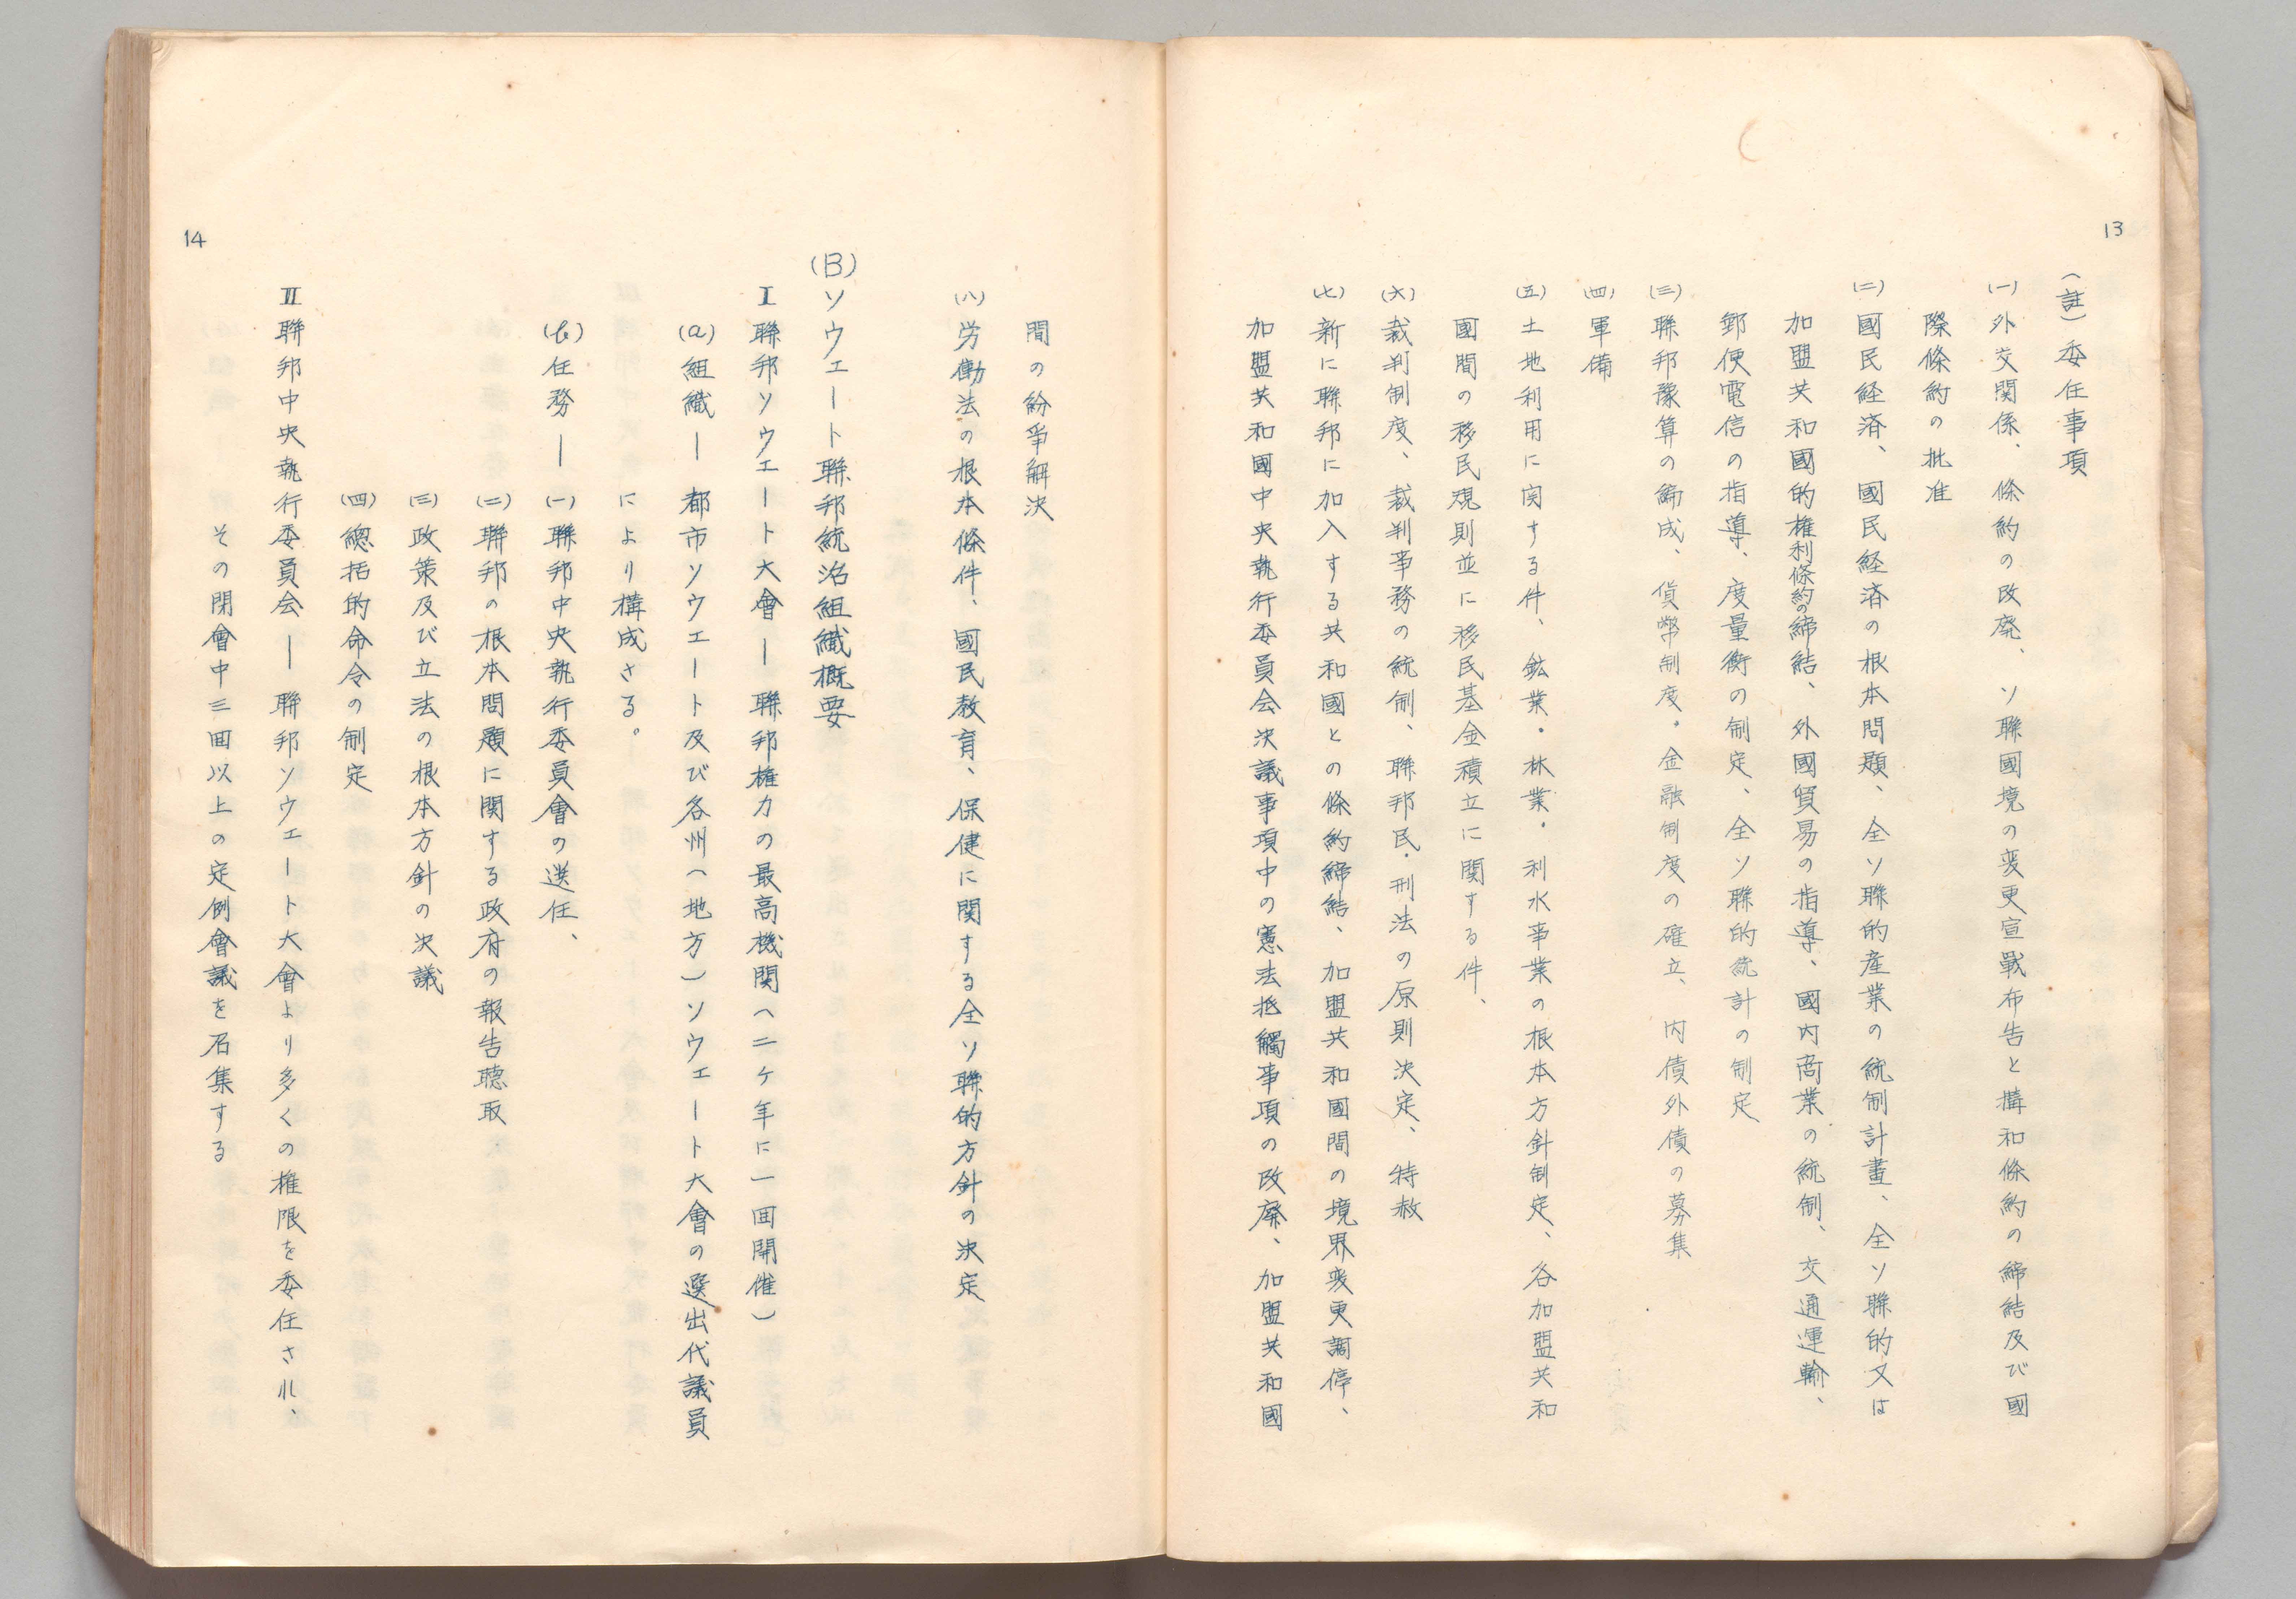 13
（註）委任事項
(一)外交関係、條約の改廃、ソ聯國境の変更宣戰布告と構和條約の締結及び國
際條約の批准
(二)國民経済、國民経済の根本問題、全ソ聯的産業の統制計畫、全ソ聯的又は
加盟共和國的権利條約の締結、外國貿易の指導、國内商業の統制、交通運輸、
郵便電信の指導、度量衡の制定、全ソ聯的統計の制定
(三)聯邦豫算の編成、貨幣制度・金融制度の確立、内債外債の募集
(四)軍備
(五)土地利用に関する件、鉱業・林業・利水事業の根本方針制定、各加盟共和
國間の移民規則並に移民基金積立に関する件、
(六)裁判制度、裁判事務の統制、聯邦民・刑法の原則決定、特赦
(七)新に聯邦に加入する共和國との條約締結、加盟共和國間の境界変更調停、
加盟共和國中央執行委員会決議事項中の憲法抵觸事項の改廃、加盟共和國
間の紛爭解決
(八)労働法の根本條件、國民教育、保健に関する全ソ聯的方針の決定
(B)ソウエート聯邦統治組織概要
I 聯邦ソウエート大會―聯邦権力の最高機関（二ケ年に一回開催）
(a)組織―都市ソウエート及び各州（地方）ソウエート大會の選出代議員
により構成さる。
(b)任務―(一)聯邦中央執行委員會の選任、
(二)聯邦の根本問題に関する政府の報告聴取
(三)政策及び立法の根本方針の決議
(四)總括的命令の制定
II 聯邦中央執行委員会―聯邦ソウエート大會より多くの権限を委任され、
その閉會中三回以上の定例會議を召集する
14